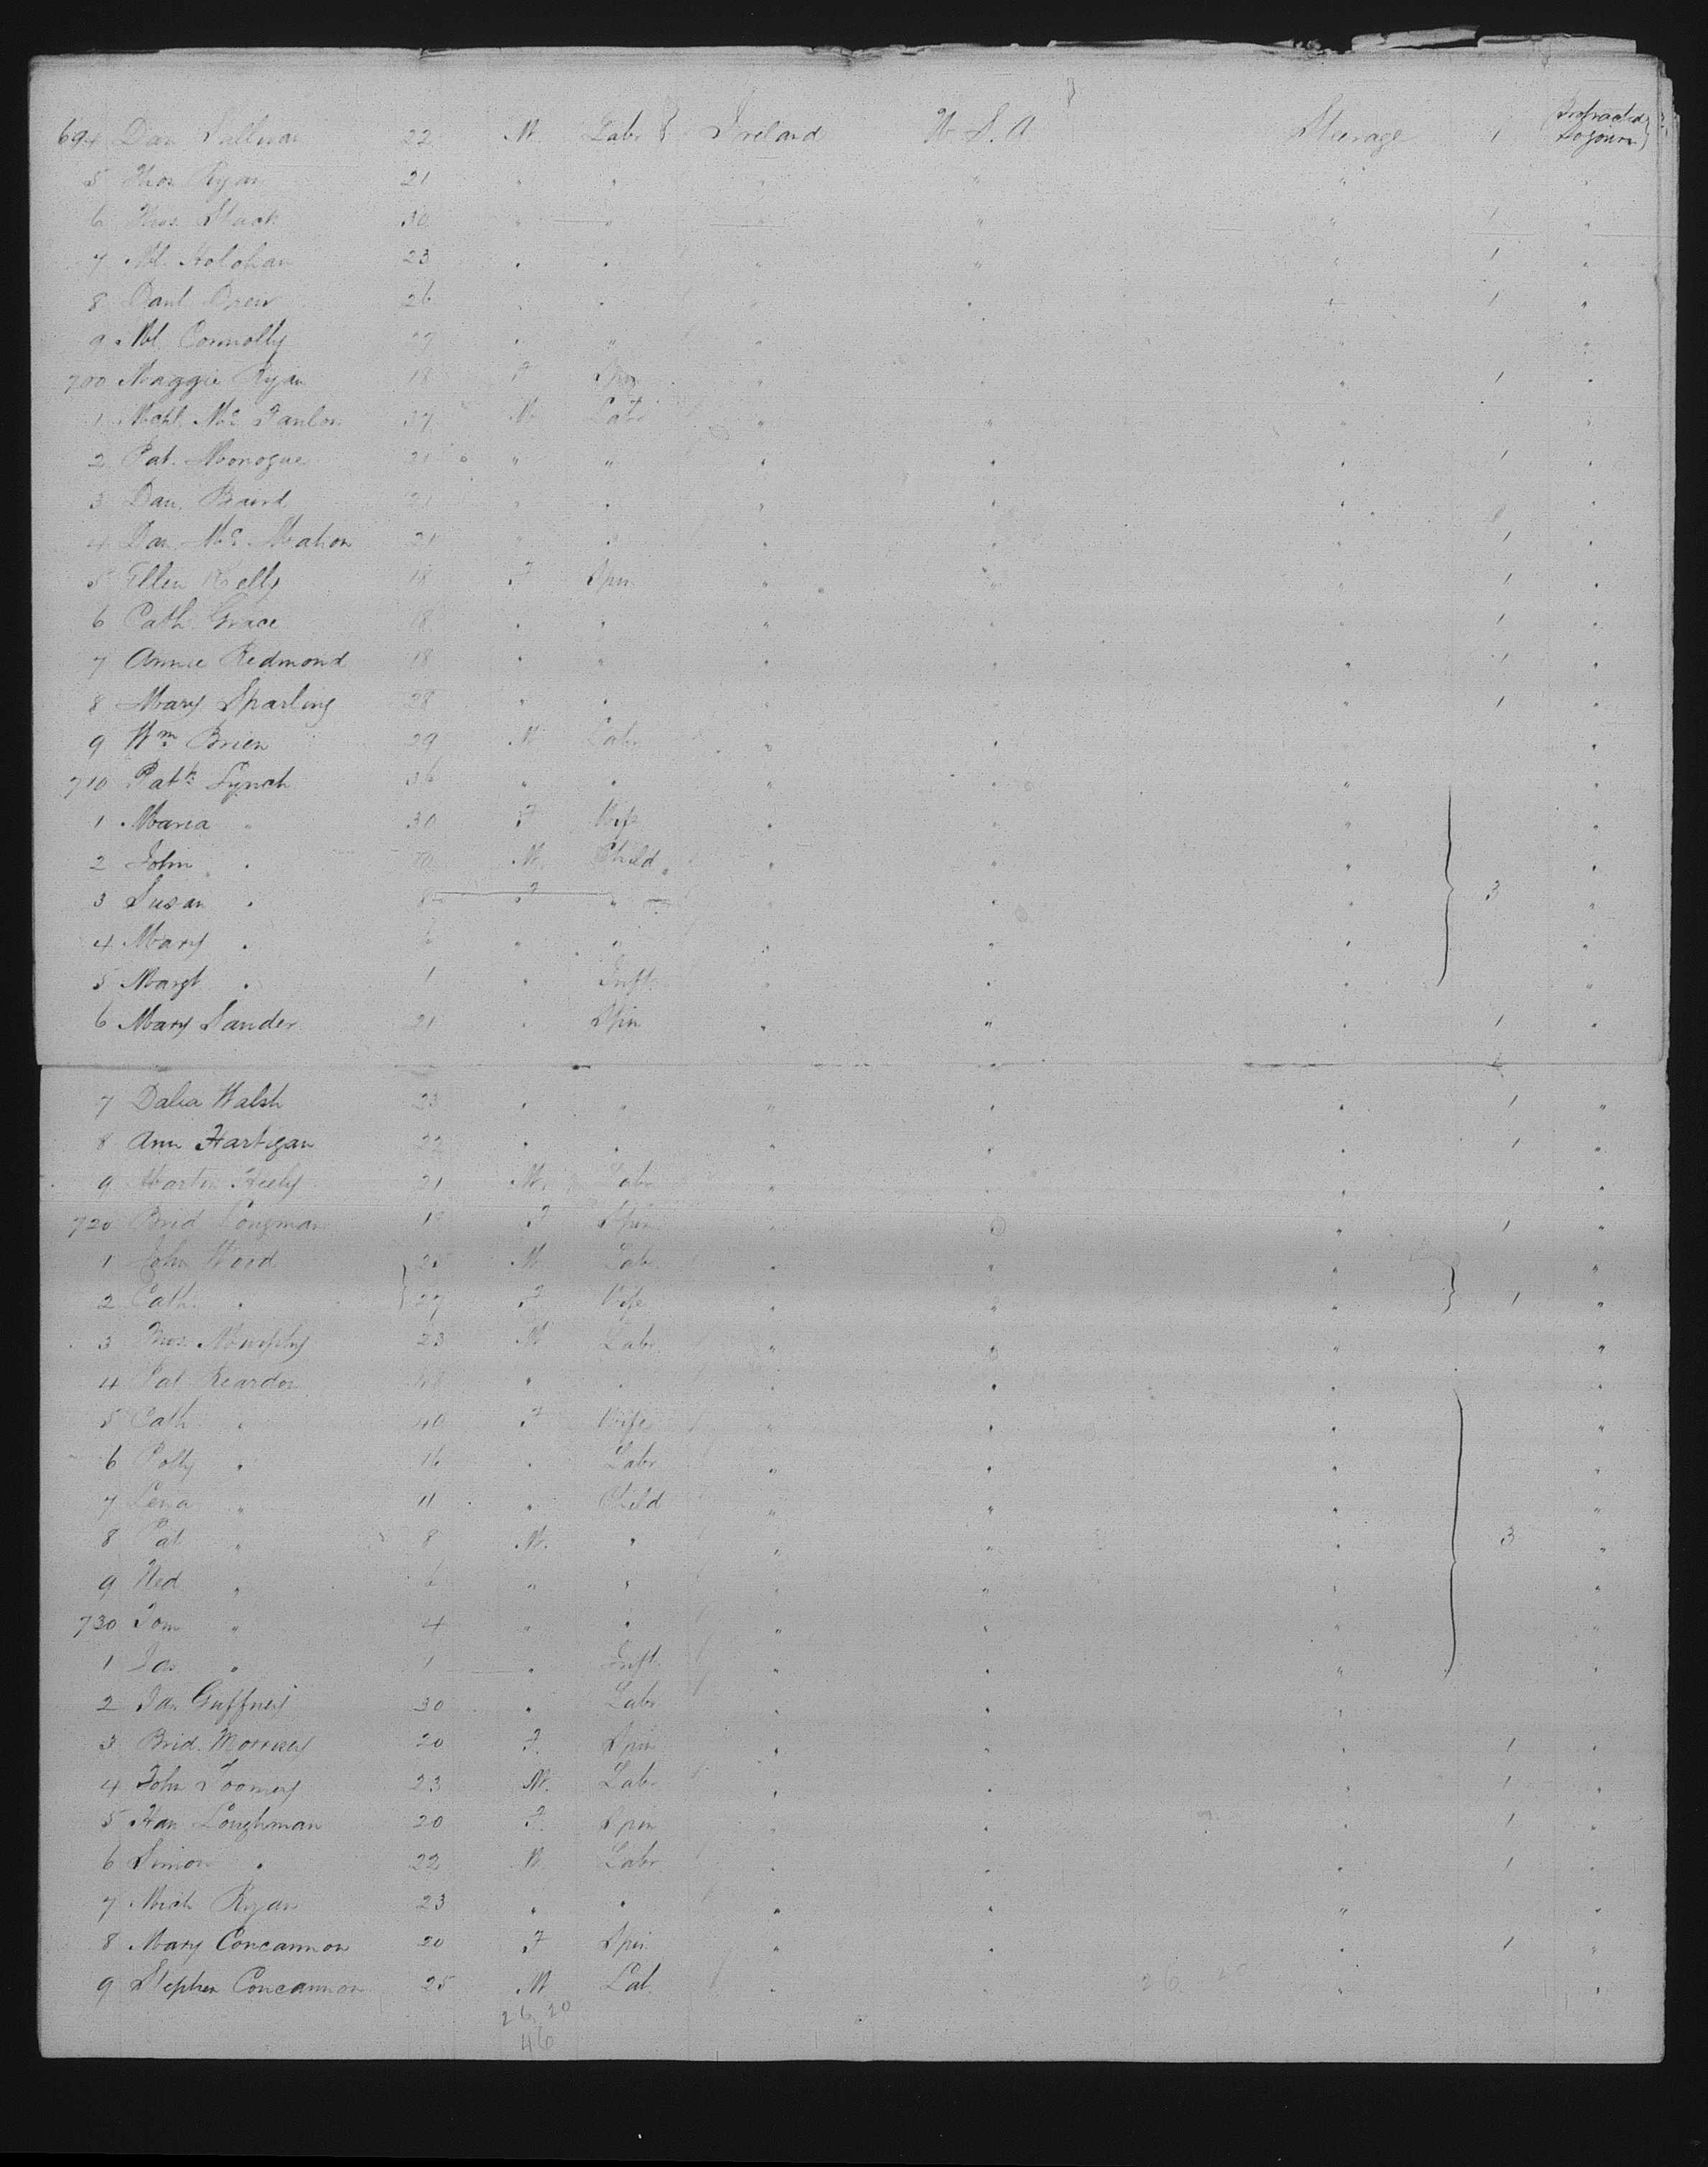 694 Dan Sullivan 22 M Labr Ireland U.S.A Steerage 1 Protracted Sojourn
5 Thos Ryan 21 " " " " " "
6 Thos. Slack 30 " " " " " 1 "
7 Ml. Holohan 23 " " " " " 1 "
8 Danl 26 " " " " " 1 "
9 Ml. Connolly " " " " " "
700 Maggie Ryan 18 F Spin " " " 1 "
1 Mchl. Mc Fanlon 37 M Labr " " " "
2 Pat. Monogue 21 " " " " " 1 "
3 Dan. Baird 21 " " " " " "
4 Dan Mc Mahon 21 " " " " " 1 "
5 Ellen Kelly 18 F Spin " " " 1 "
6 Cath. Grace 18 " " " " " 1 "
7 Annie Redmond 18 " " " " " 1 "
8 Mary Sparling 28 " " " " " 1 "
9 Wm Brien 29 M Labr " " " "
710 Patk Lynch 36 " " " " " "
1 Maria " 30 F Wife " " " "
2 John " 10 M. Child " " " "
3 Susan " 8 F " " " " 3 "
4 Mary " 6 " " " " " "
5 Margt " 1 " Inft. " " " "
6 Mary Sander 21 " Spin " " " 1 "
7 Dalia Walsh 23 " " " " " 1 "
8 Ann Hartigan 22 " " " " " 1 "
9 Martin Heely 21 M. Labr " " " "
720 Brid Longman 19 F Spin " " " 1 "
1 John Wood 25 M. Labr " " " "
2 Cath. " 27 F Wife " " " 1 "
3 Thos. Murphy 23 M Labr " " " "
4 Pat Reardon 48 " " " " " "
5 Cath " 40 F Wife " " " "
6 Polly " 16 " Labr " " " "
7 Lena " 11 " Child " " " "
8 Pat " 8 M. " " " " 3 "
9 Ned " 6 " " " " " "
730 Tom " 4 " " " " " "
1 Jas " 1 " Inft. " " " "
2 Jas. Guffney 30 " Labr " " " "
3 Brid. Morrisey 20 F. Spin " " " 1 "
4 John Toomey 23 M. Labr " " " 1 "
5 Han Loughman 20 F. Spin " " " 1 "
6 Simon " 22 M Labr " " " 1 "
7 Mich Ryan 23 " " " " " "
8 Mary Concannon 20 F Spin " " " 1 "
9 Stephen Concannon 25 M Lab " 26 20 " "
26 20
46